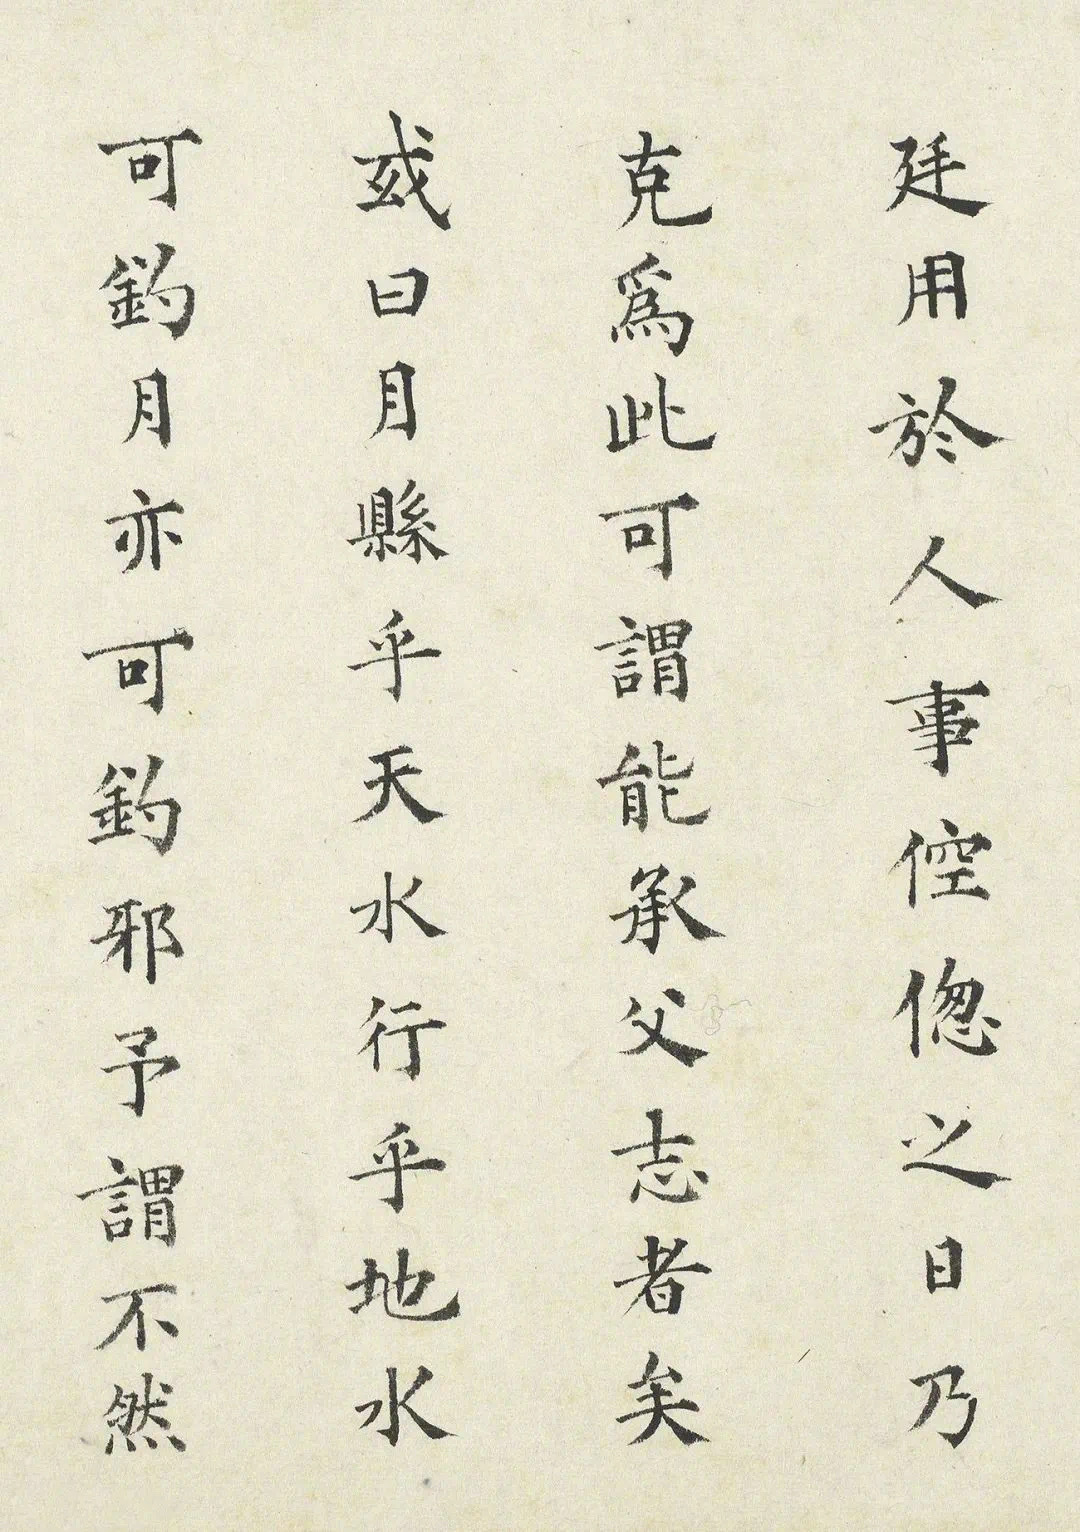 廷用於人事倥偬之日乃
克為此可謂能承父志者矣
或曰月縣乎天水行乎地水
可釣月亦可釣邪予謂不然